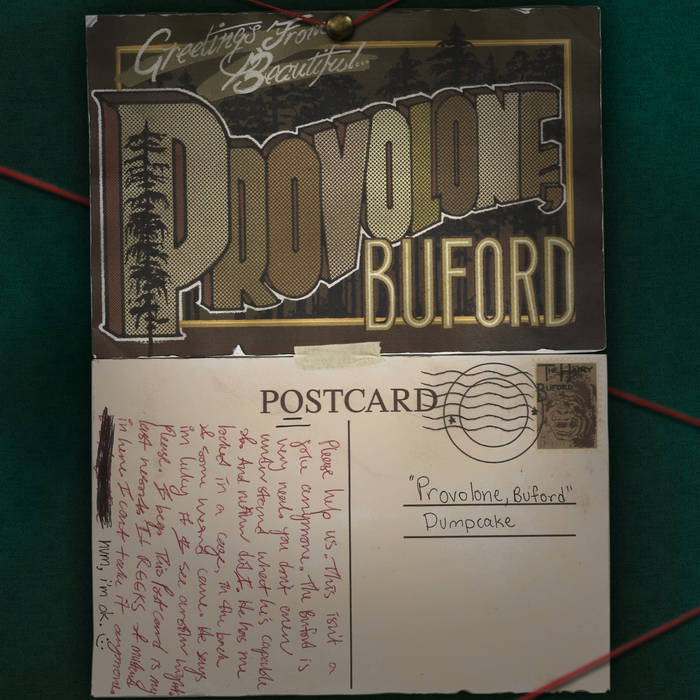 Greetings From
Beautiful...
PROVOLONE,
BUFORD
POSTCARD
THE HAIRY
BUFORD
"Provolone, Buford"
Dumpcake
Please help us. This isn't a
joke anymore. The Buford is
very you don't even
understand what he's capable
of. And neither did I. He has me
locked in a cage, in the back
of some cave. He says
im lucky if I see another night
Please. I beg. This Postcard is my
last It REEKS of
in here. I cant take it anymore
mum, i'm ok. :)